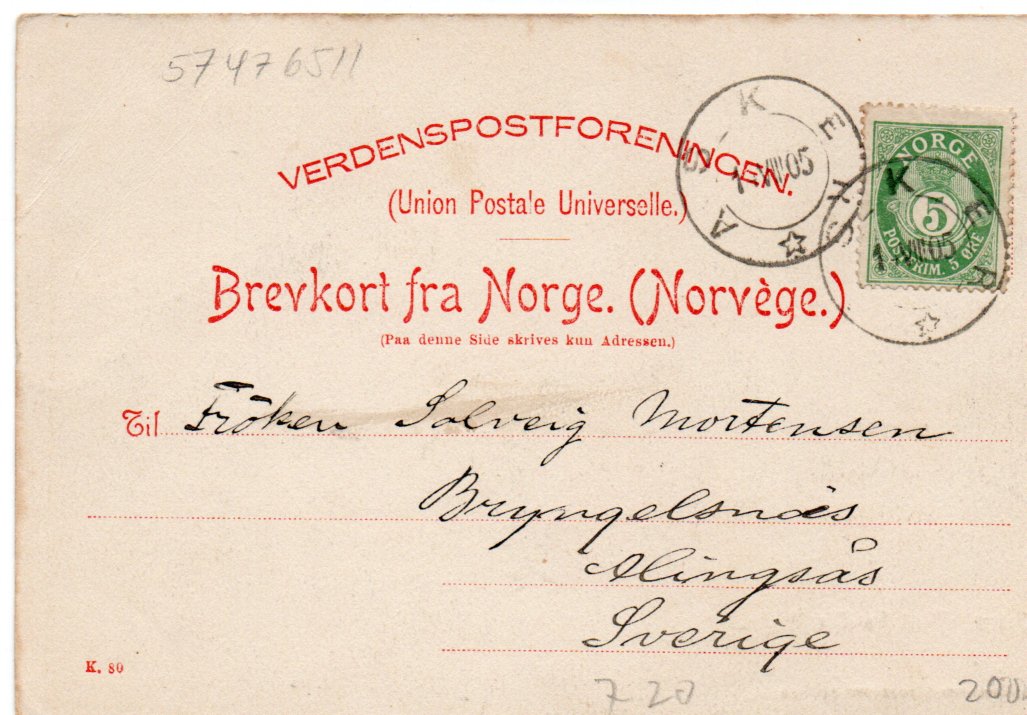 57476511
VERDENSPOSTFORENINGEN.
(Union Postale Universelle.)
Brevkort fra Norge. (Norvège.)
(Paa denne Side skrives kun Adressen.)
ASKER
1 VIII 05
NORGE
5
POSTFRIM. 5 ØRE
ASKER
1 VIII 05
Til Fröken Solveig Mortensen
Bryngelsnäs
Alingsås
Sverige
K. 80
7 20
200